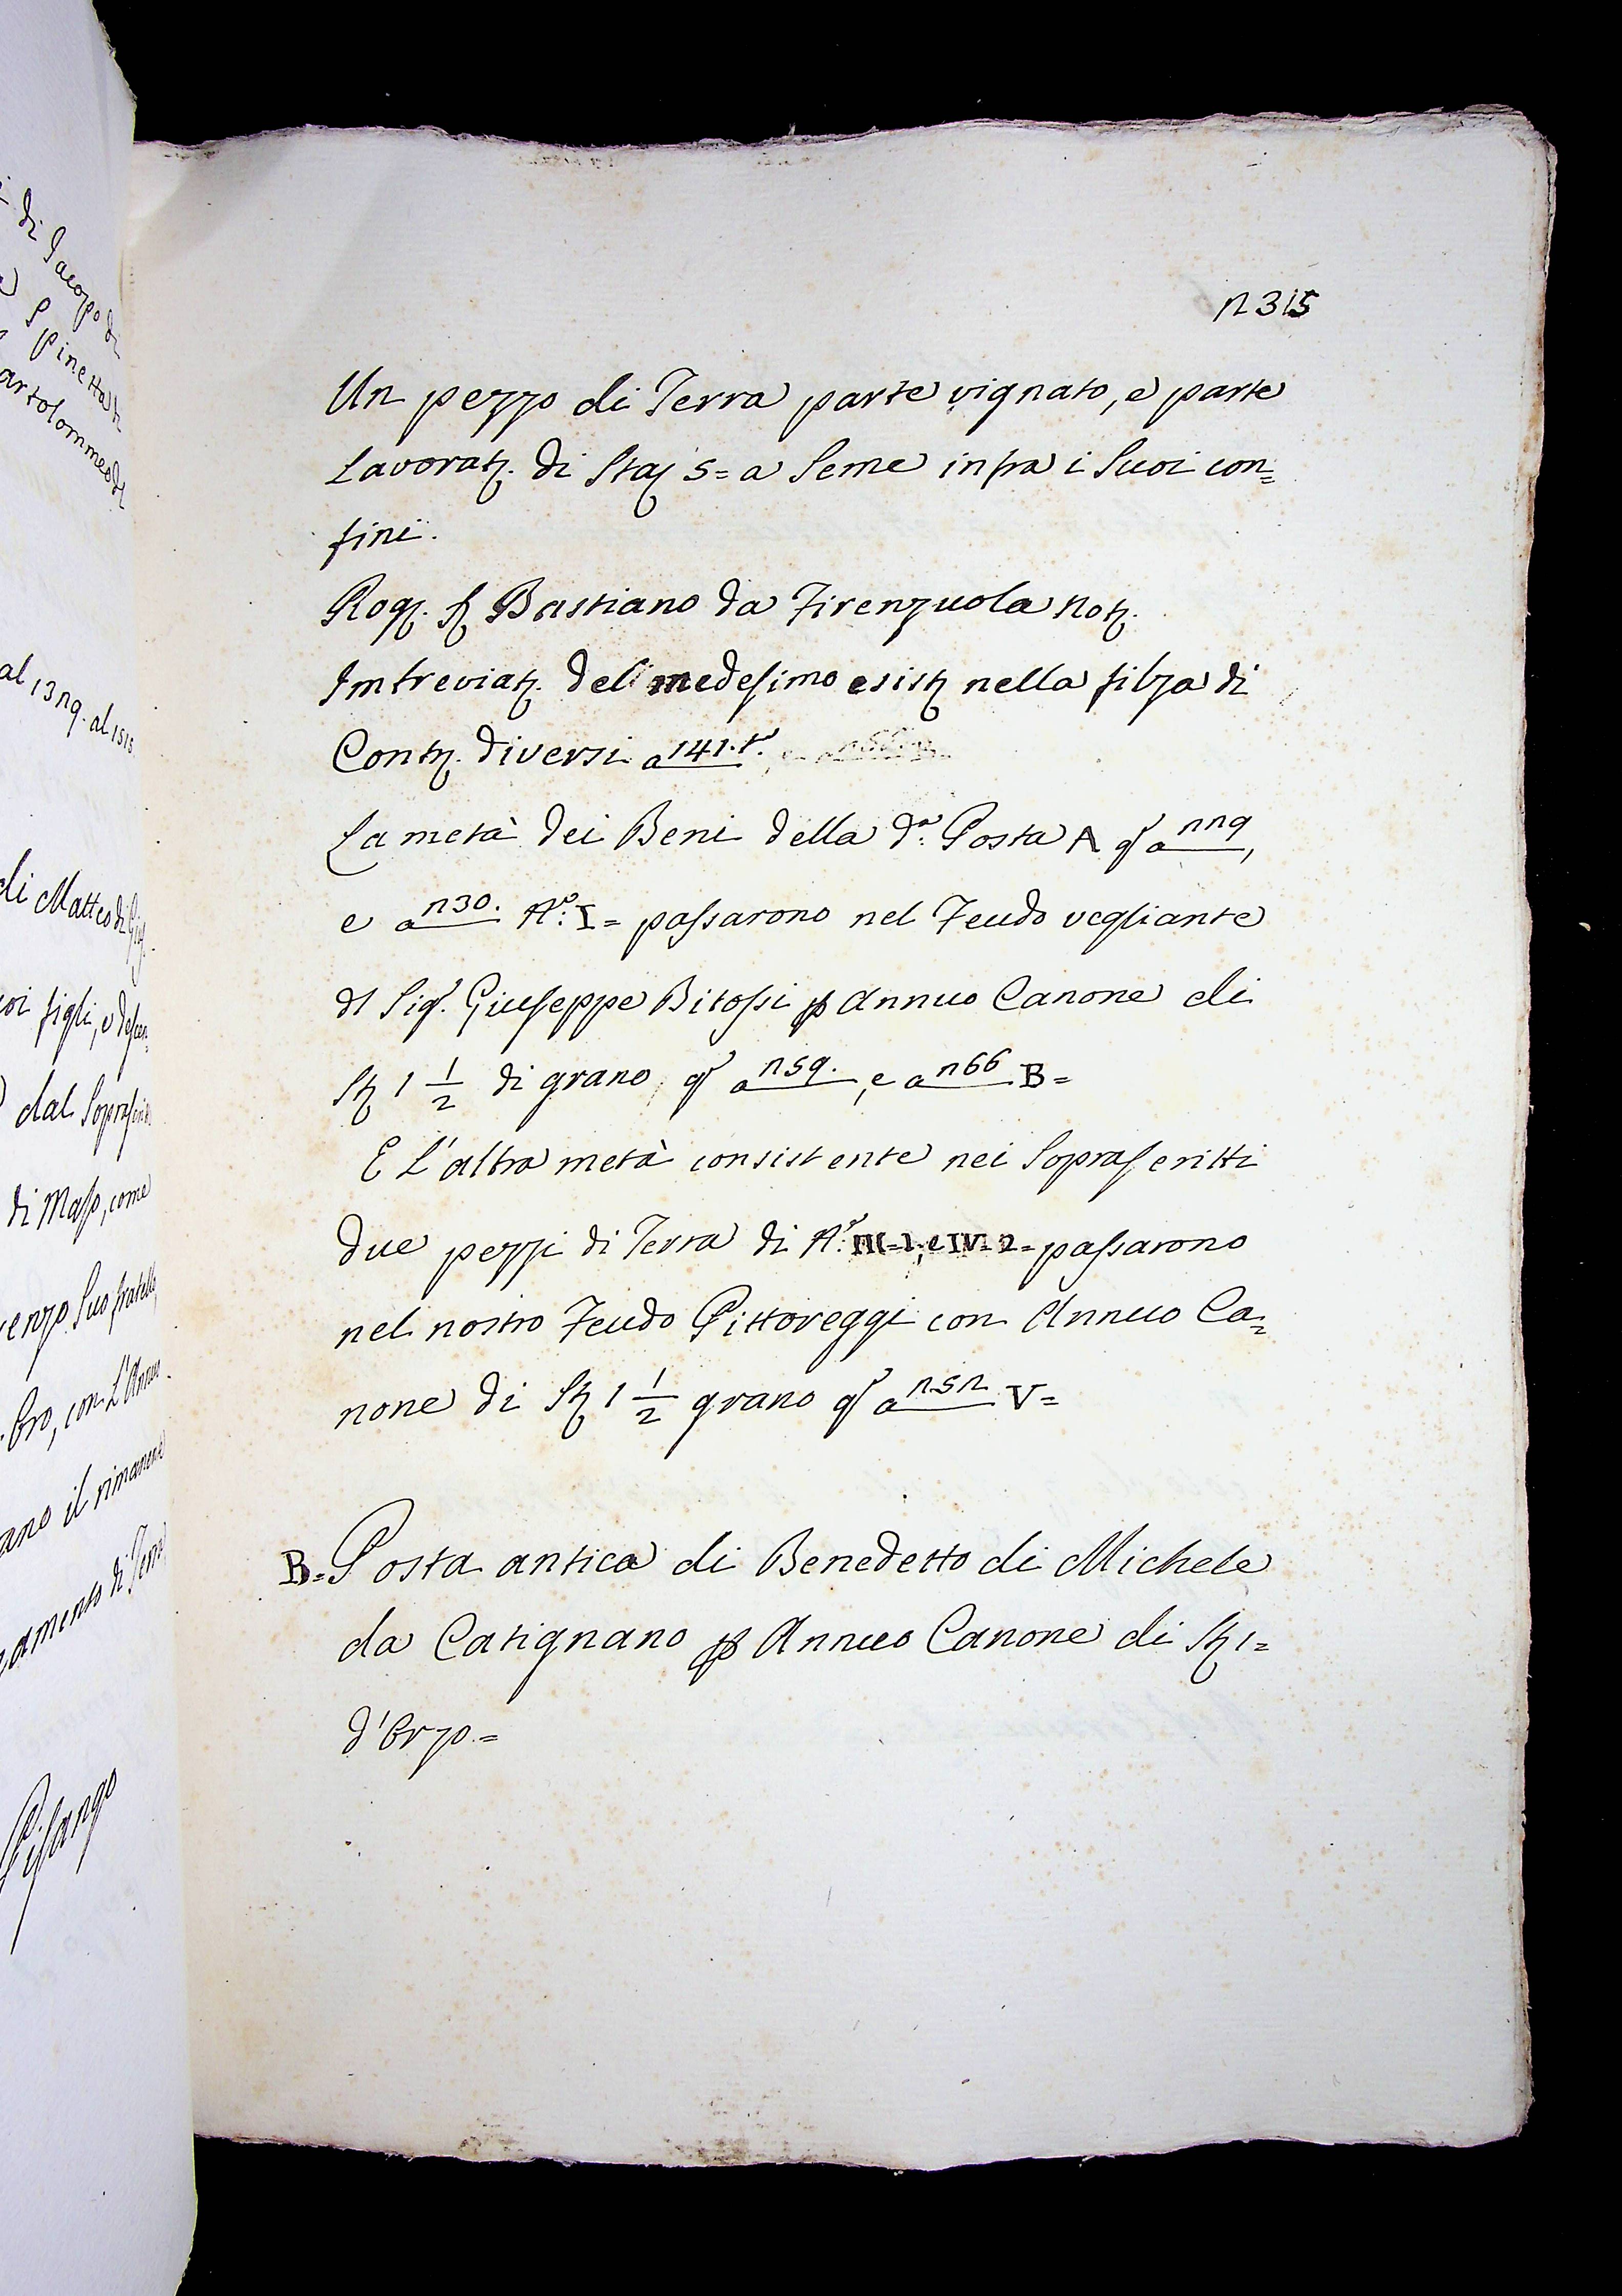 di Jacopo di
Pinetta di
artolommeo di
al 13n9. al 1515
di Matteo di Giu
oi figli, e descen=
dal Soprascritt
di Masso, come
enzo Suo fratello
bro, con L'Annuo
ano il rimanente
amento di Terra
n315
Un pezzo di Terra parte vignato, e parte
Lavorat. di Staj 5= a Seme infra i Suoi con=
fini.
Rog. S. Bastiano da Firenzuola Not.
Imbreviat. del medesimo esist. nella filza di
Cont. diversi a 141. t.
La metà dei Beni della d.ª Posta A q.ª a nn9,
e a n30. A.º: I= passarono nel Feudo vegliante
dl Sig.r Giuseppe Bitossi p Annuo Canone di
St. 1 1/2 di grano, q.ª a n59., e a n66 B=
E L'altra metà consistente nei Soprascritti
due pezzi di Terra di A.º: III=1, e IV=2= passarono
nel nostro Feudo Pittoreggi con Annuo Ca=
none di St. 1 1/2 grano q.ª a n5n V=
B= Posta antica di Benedetto di Michele
da Catignano p Annuo Canone di St. 1=
d'Orzo.=